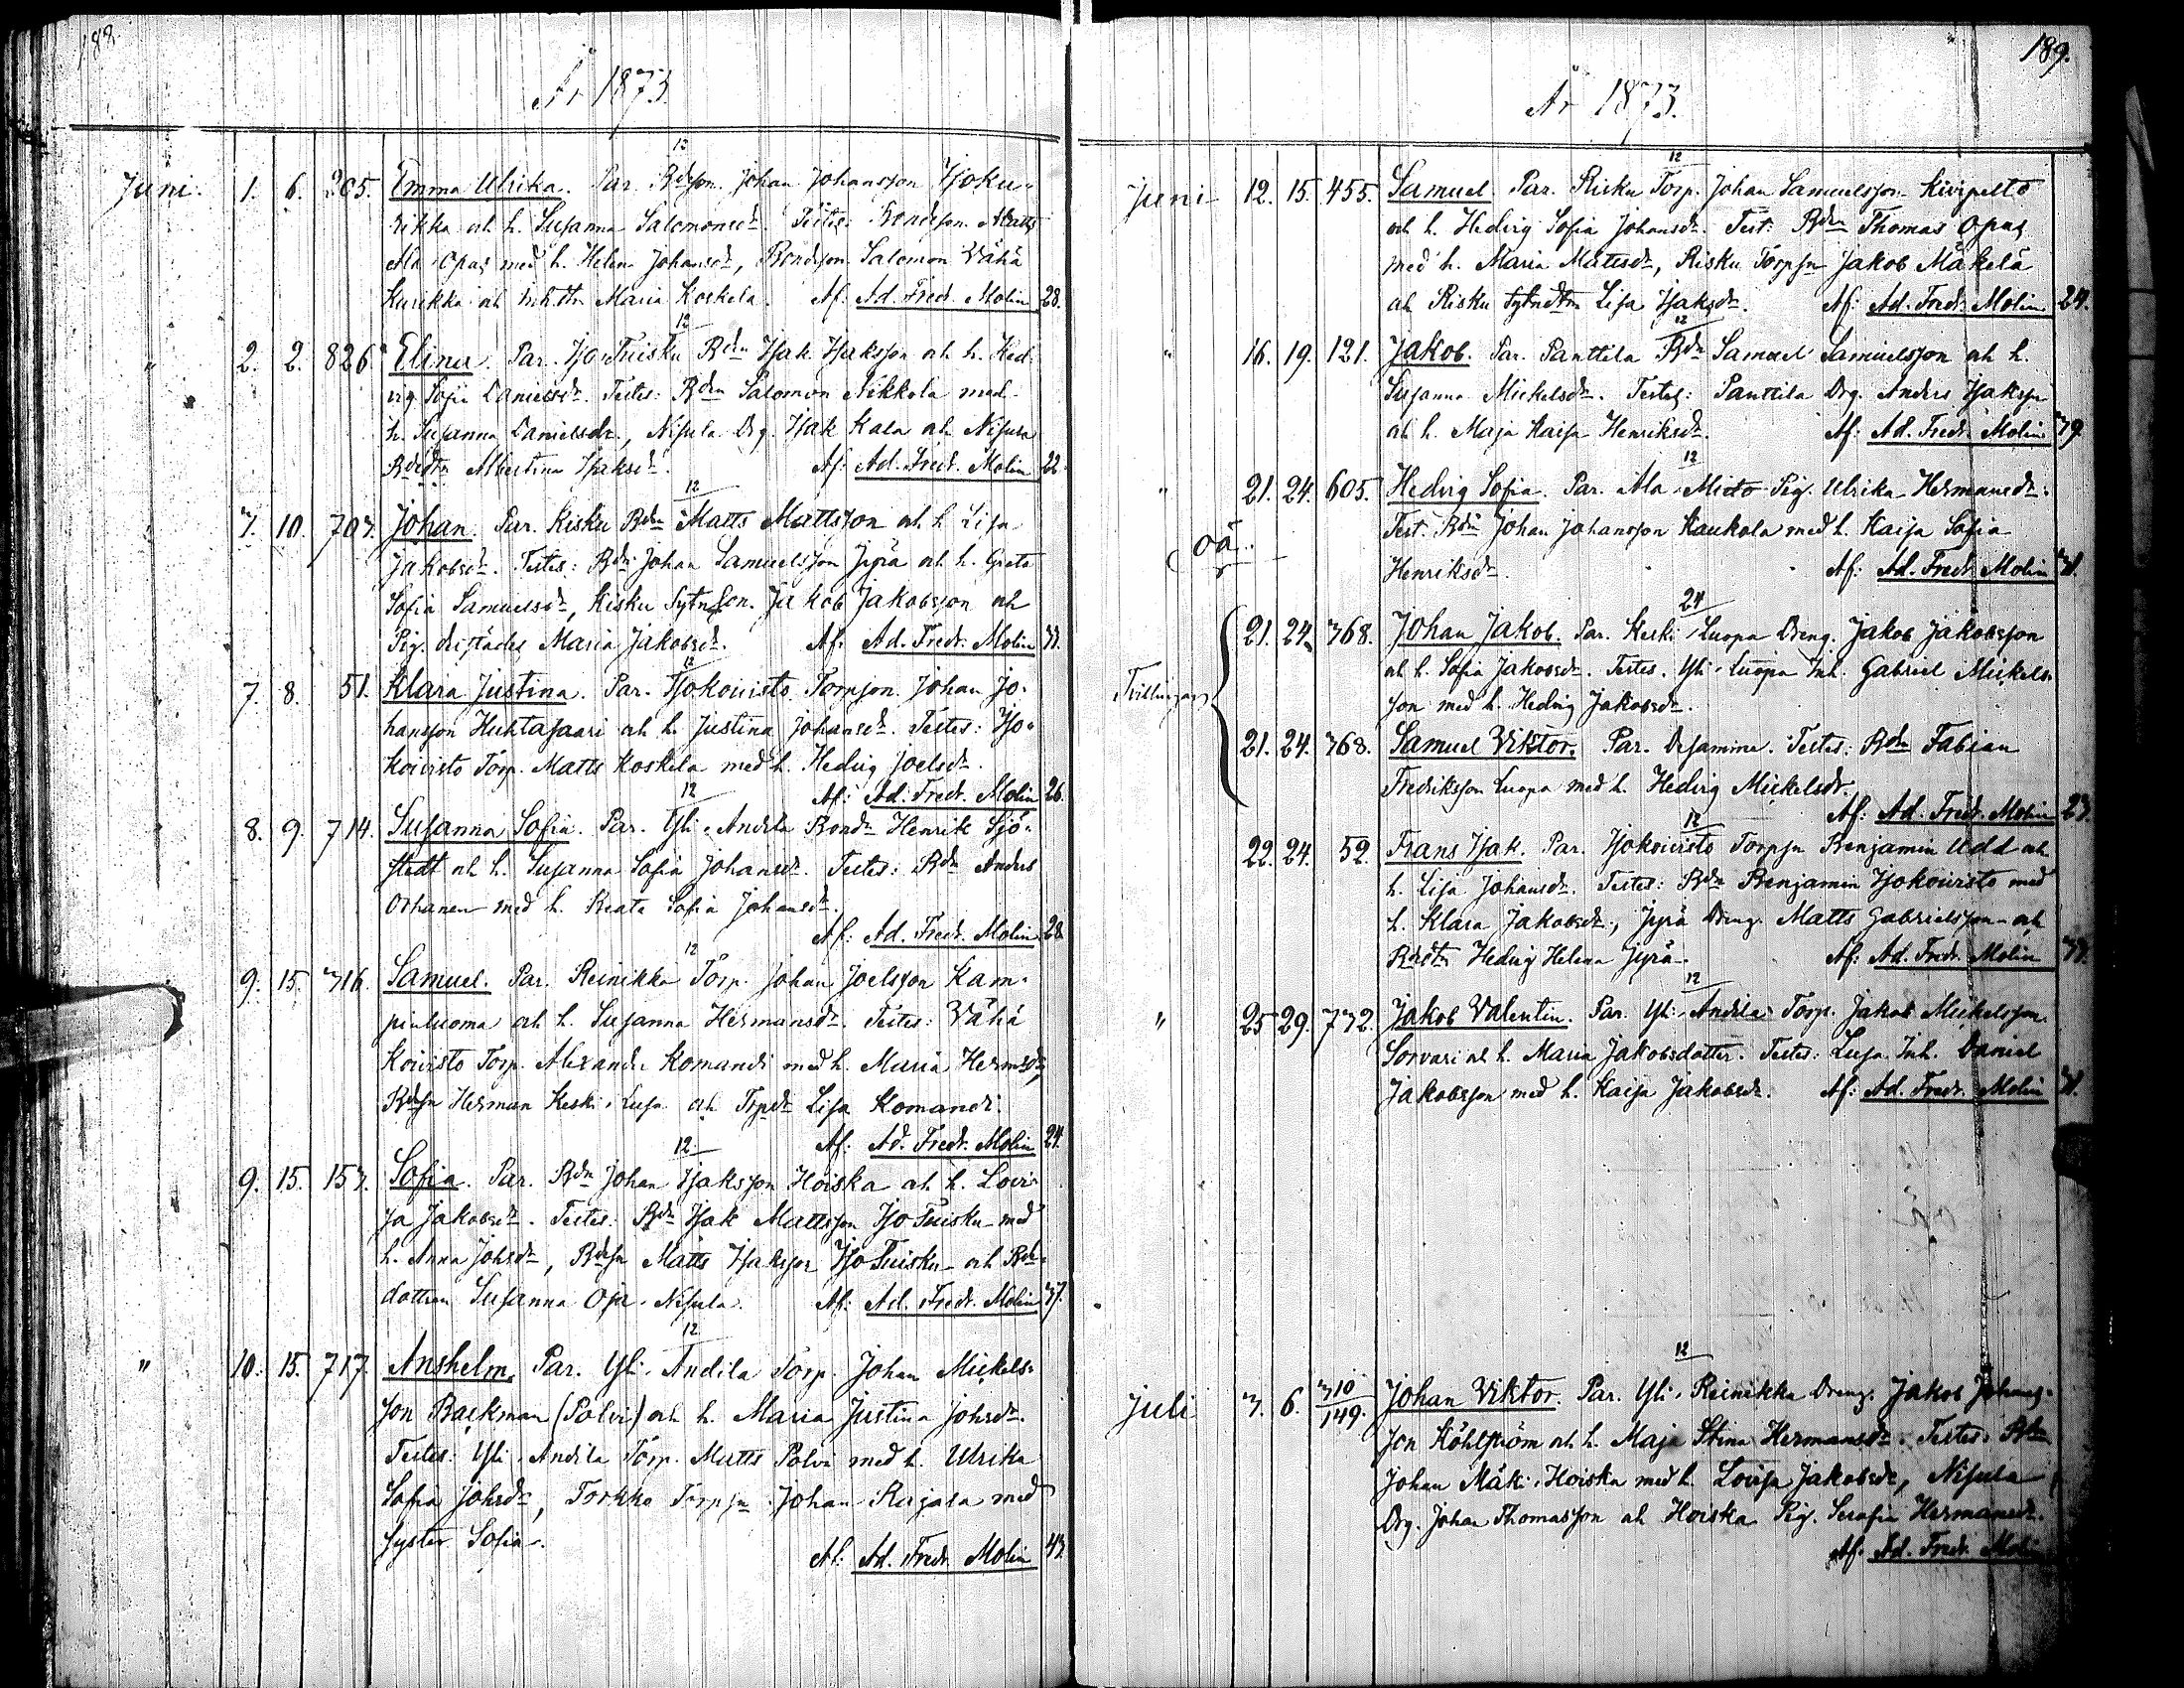 188.
År 1873.
12
Juni. 1. 6. 205. Emma Ulrika. Par. Bdeson. Johan Johansson Isoku-
rikka och h. Susanna Salomonsdr. Testes: Bondeson. Matts
Ala-Opas med h. Helena Johansdr, Bondeson Salomon Vähä
Kurikka och Maria Koskela. Af: Ad. Fredr. Molin 28.
12
" 2. 2. 826. Elina. Par. Iso-Tuisku Bdn Isak Isaksson och h. Hed-
vig Sofia Danielsdr. Testes: Bdn Salomon Nikkola med
h. Susanna Danielsdr, Nisula Drg. Isak Kala och Nisula
Bdedtn Albertina Isaksdr. Af: Ad. Fredr. Molin 22.
12
7. 10. 707. Johan. Par. Risku Bdn Matts Mattsson och h. Lisa
Jakobsdr. Testes: Bdn Johan Samuelsson Jyrä och h. Greta
Sofia Samuelsdr, Risku Sytnson. Jakob Jakobsson och
Pig. Maria Jakobsdr. Af: Ad. Fredr. Molin 37.
12
7. 8. 51. Klara Justina. Par. Isokoivisto Torpson. Johan Jo-
hansson Huhtasaari och h. Justina Johansdr. Testes: Iso-
koivisto Torp. Matts Koskela med h. Hedvig Joelsdr.
Af: Ad. Fredr. Molin 26.
12
8. 9. 714. Susanna Sofia. Par. Yli-Andila Bondn Henrik Sjö-
stedt och h. Susanna Sofia Johansdr. Testes: Bdn Anders
Orhanen med h. Beata Sofia Johansdr.
Af: Ad. Fredr. Molin 28.
12
9. 15. 316. Samuel. Par. Reinikka Torp. Johan Joelsson Kam-
pinluoma och h. Susanna Hermansdr. Testes: Vähä
Koivisto Torp. Alexander Komandi med h. Maria Hermsdr,
Bdesn Herman Keski-Lusa och Trpdr Lisa Komandi.
Af: Ad. Fredr. Molin 24.
12
9. 15. 157. Sofia. Par. Bdn Johan Isaksson Hoiska och h. Lovi-
sa Jakobsdr. Testes: Bdn Isak Mattsson Iso Tuisku med
h. Anna Johsdr, Bdesn Matts Isaksson Iso-Tuisku och Bde-
dottren Susanna Oja-Nisula. Af: Ad. Fredr. Molin 37.
12
" 10. 15. 717. Anshelm. Par. Yli-Andila Torp. Johan Mickels-
son Backman (Polvi) och h. Maria Justina Johsdr.
Testes: Yli-Andila Torp. Matts Polvi med h. Ulrika
Sofia Johsdr, Torkko Torpsn Johan Rinjala med
syster Sofia.
Af: Ad. Fredr. Molin 43.
189.
År 1873.
12
Juni 12. 15. 455. Samuel. Par. Risku Torp. Johan Samuelsson Kivipelto
och h. Hedvig Sofia Johansdr. Test: Bdn Thomas Opas
med h. Maria Mattsdr, Risku Torpsn Jakob Mäkelä
och Risku Sytndtn Lisa Isaksdr. Af: Ad. Fredr. Molin. 24.
12
" 16. 19. 121. Jakob. Par. Panttila Bdn Samuel Samuelsson och h.
Susanna Mickelsdr. Testes: Panttila Drg. Anders Isaksson
och h. Maja Kaisa Henriksdr. Af: Ad. Fredr. Molin 39.
12
" 21. 24. 605. Hedvig Sofia. Par. Ala-Mieto Pig. Ulrika Hermansdr.
Test: Bdn Johan Johansson Kaukola med h. Kaisa Sofia
oä.
Henriksdr. Af: Ad. Fredr. Molin 31.
24
Tvillingar 21. 24. 368. Johan Jakob. Par. Keski-Luopa Dreng. Jakob Jakobsson
och h. Sofia Jakobsdr. Testes. Yli-Luopa Inh. Gabriel Mickels-
son med h. Hedvig Jakobsdr.
21. 24. 368. Samuel Viktor. Par. Desamma. Testes: Bdn Fabian
Fredriksson Luopa med h. Hedvig Mickelsdr.
Af: Ad. Fredr. Molin 23.
12
22. 24. 52. Frans Isak. Par. Isokoivisto Torpsn Benjamin Udd och
h. Lisa Johansdr. Testes: Bdn Benjamin Isokoivisto med
h. Klara Jakobsdr, Jyrä Dreng. Matts Gabrielsson och
Bdedtn Hedvig Helena Jyrä. Af: Ad. Fredr. Molin 33.
12
" 25. 29. 732. Jakob Valentin. Par. Yli-Andila Torp. Jakob Mickelsson
Sorvari och h. Maria Jakobsdotter. Testes: Lusa Inh. Daniel
Jakobsson med h. Kaisa Jakobsdr. Af: Ad. Fredr. Molin 31.
12
Juli 3. 6. 310/149. Johan Viktor. Par. Yli-Reinikka Dreng. Jakob Johans-
son Köhlström och h. Maja Stina Hermansdr. Testes: Bdn
Johan Mäki-Hoiska med h. Lovisa Jakobsdr, Nisula
Drg. Johan Thomasson och Hoiska Pig. Serafia Hermansdr.
Af: Ad. Fredr. Molin